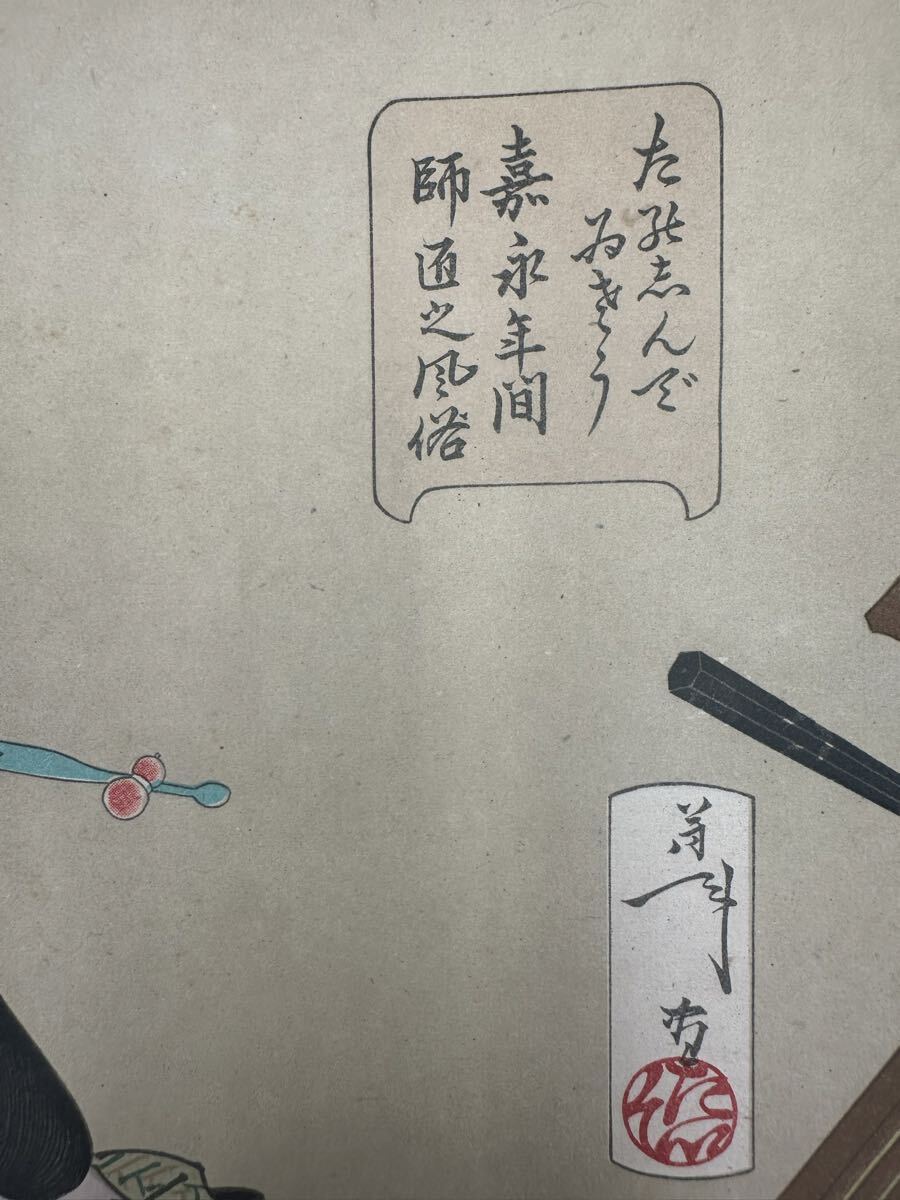 たのしんで
ゐさう
嘉永年間
師匠之風俗
芳年画